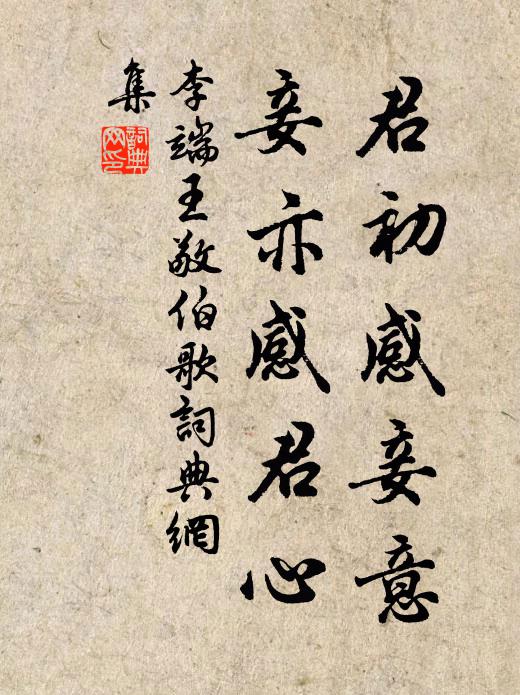 君初感妾意
妾亦感君心
李端王敬伯歌詞典網
集
詞典
网印